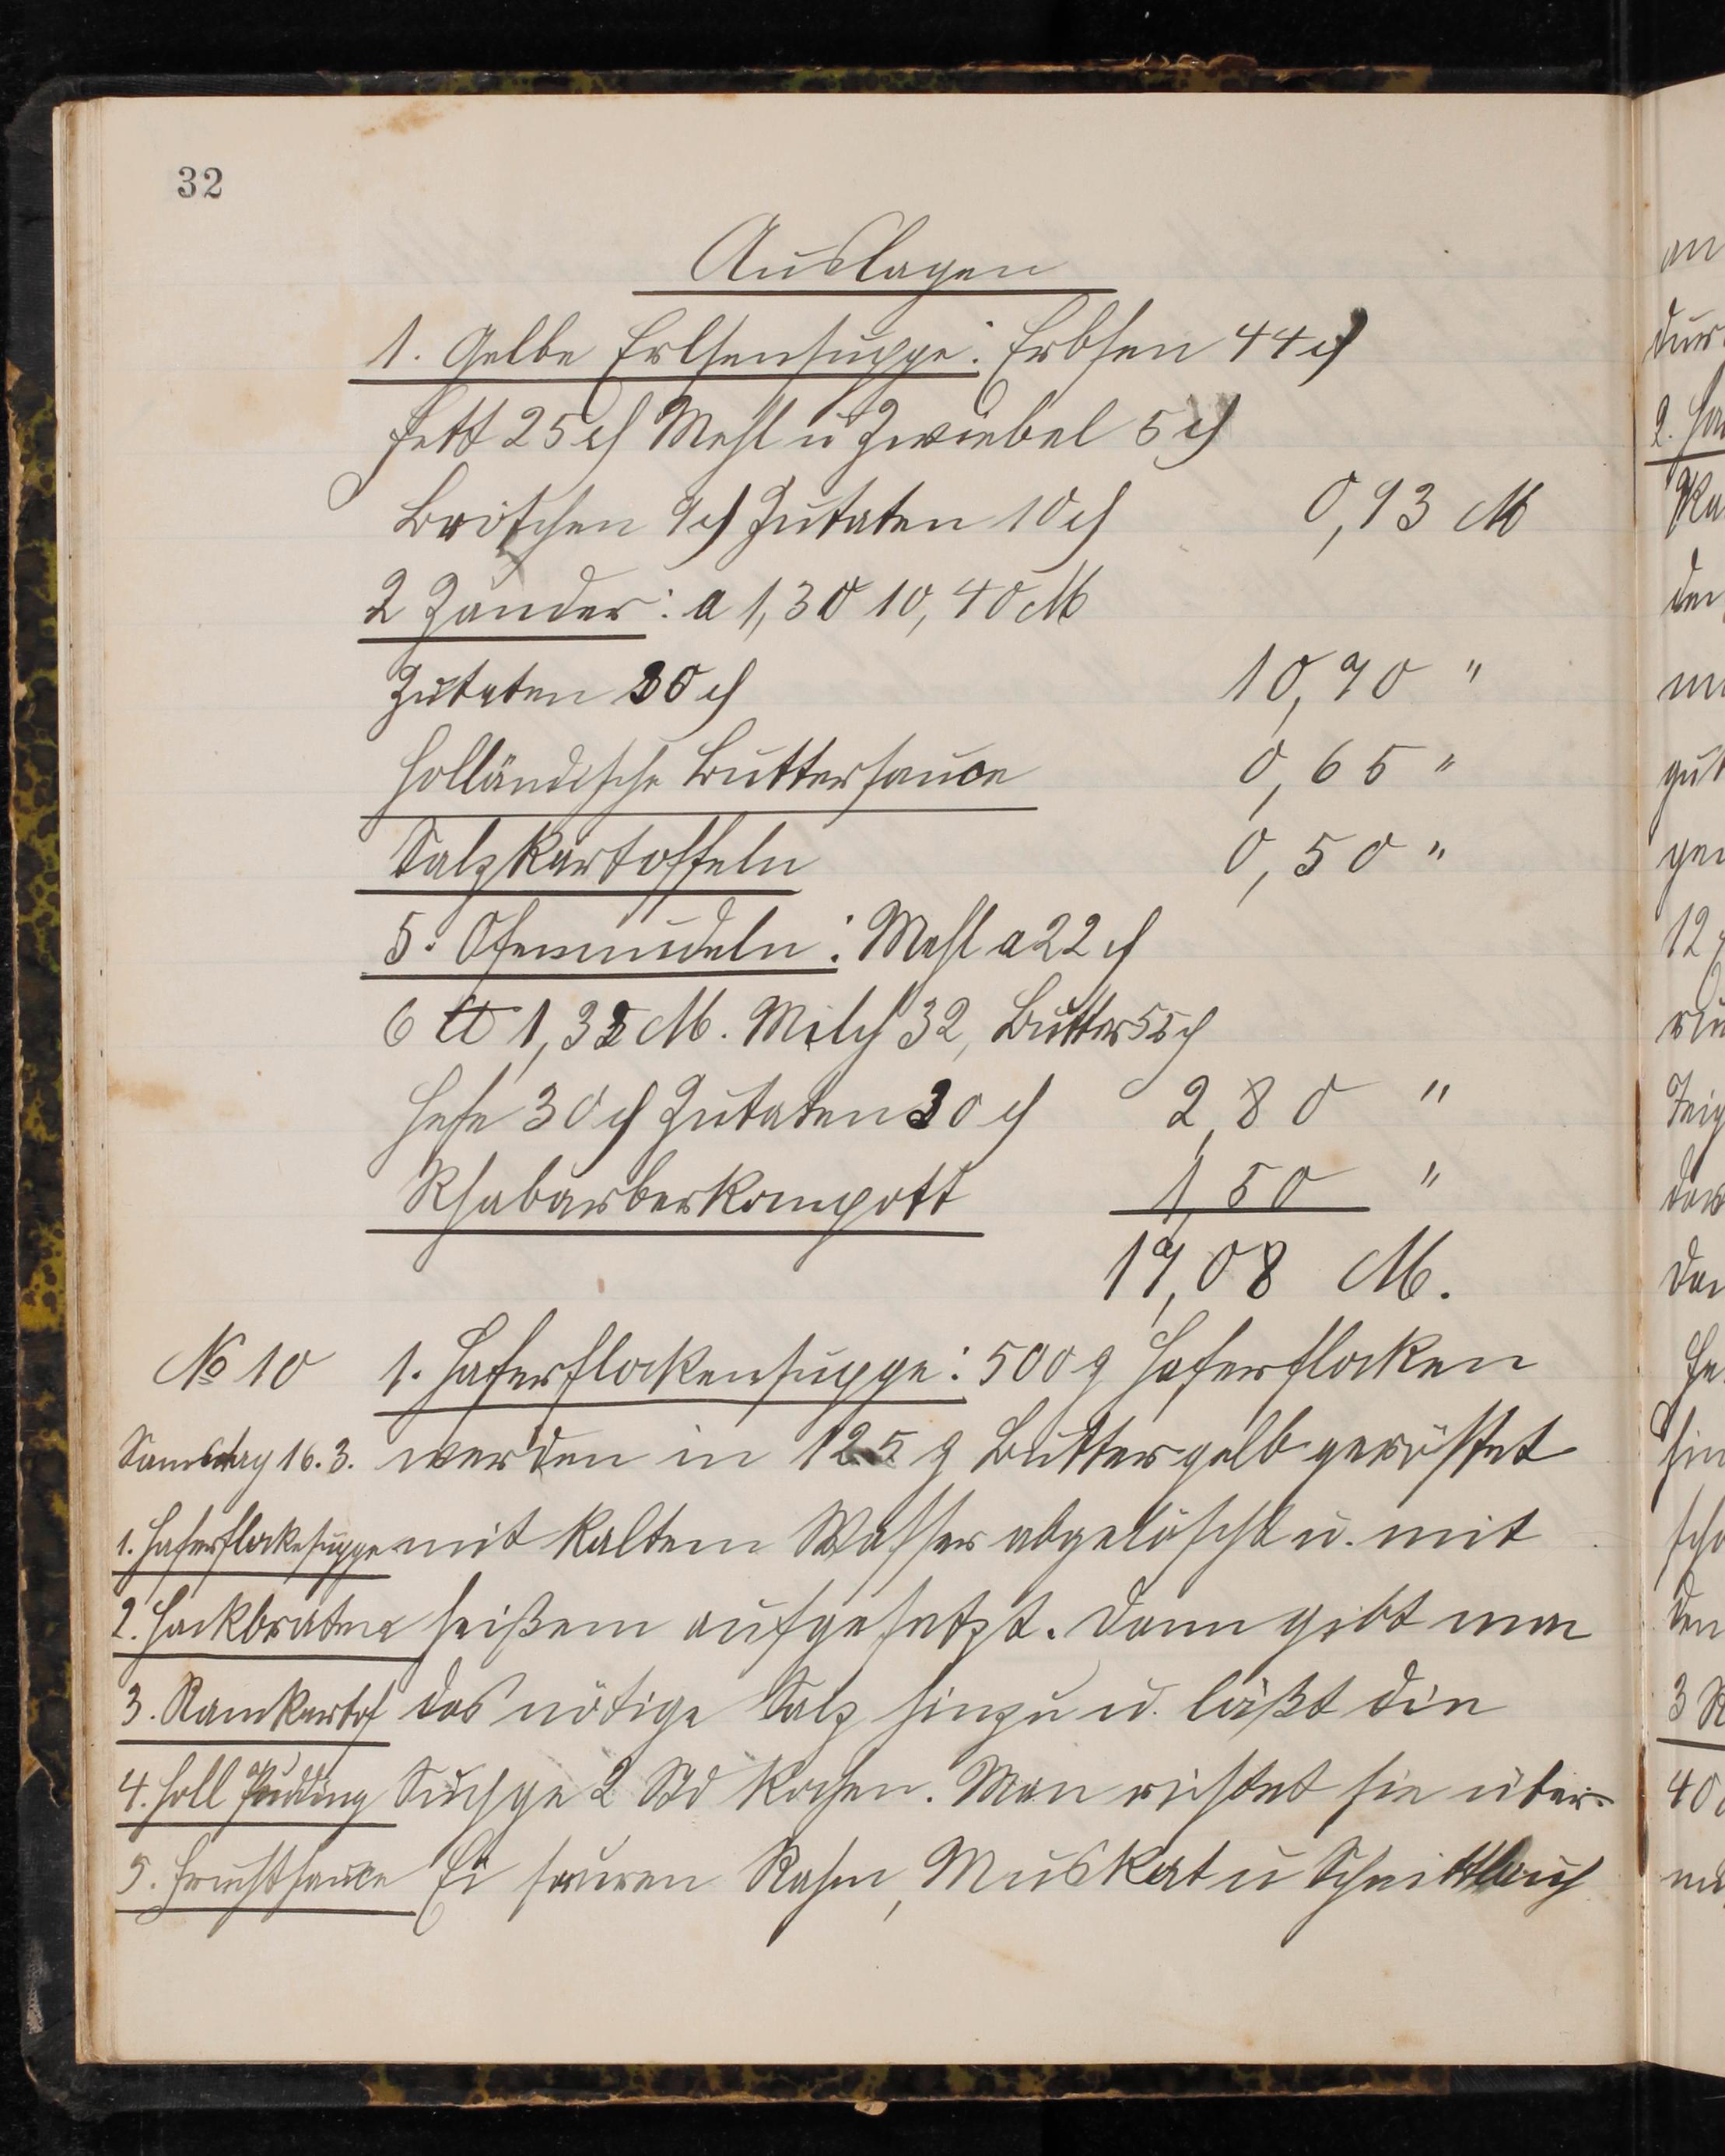 32
Auslagen
1. Gelbe Erbsensuppe: Erbsen 44 ₰
Fett 25 ₰ Mehl u Zwiebel 5 ₰
Brötchen 9 ₰ Zutaten 10 ₰ 0,93 M
2 Zander: a 1,30 10,40 M
Zutaten 30 ₰ 10,70 "
Holländische Buttersauce 0,65 "
Salzkartoffeln 0,50 "
5. Ofennudeln: Mehl a 22 ₰
6 ℔ 1,32 M. Milch 32, Butter 55 ₰
Hefe 30 ₰ Zutaten 30 ₰ 2,80 "
Rhabarberkompott 1,50 "
17,08 M.
№ 10 1. Haferflockensuppe: 500 g Haferflocken
Samstag 16. 3. werden in 125 g Butter gelb geröstet
1. Haferflockesuppe mit kaltem Wasser abgelöscht u. mit
2. Hackbraten heißem aufgesetzt. Dann gibt man
3. Ramkartof das nötige Salz hinzu u. läßt die
4. Holl Pudding Suppe 2 Std kochen. Man richtet sie über
5. Fruchtsauce Ei sauren Rahm, Muskat u Schnittlauch